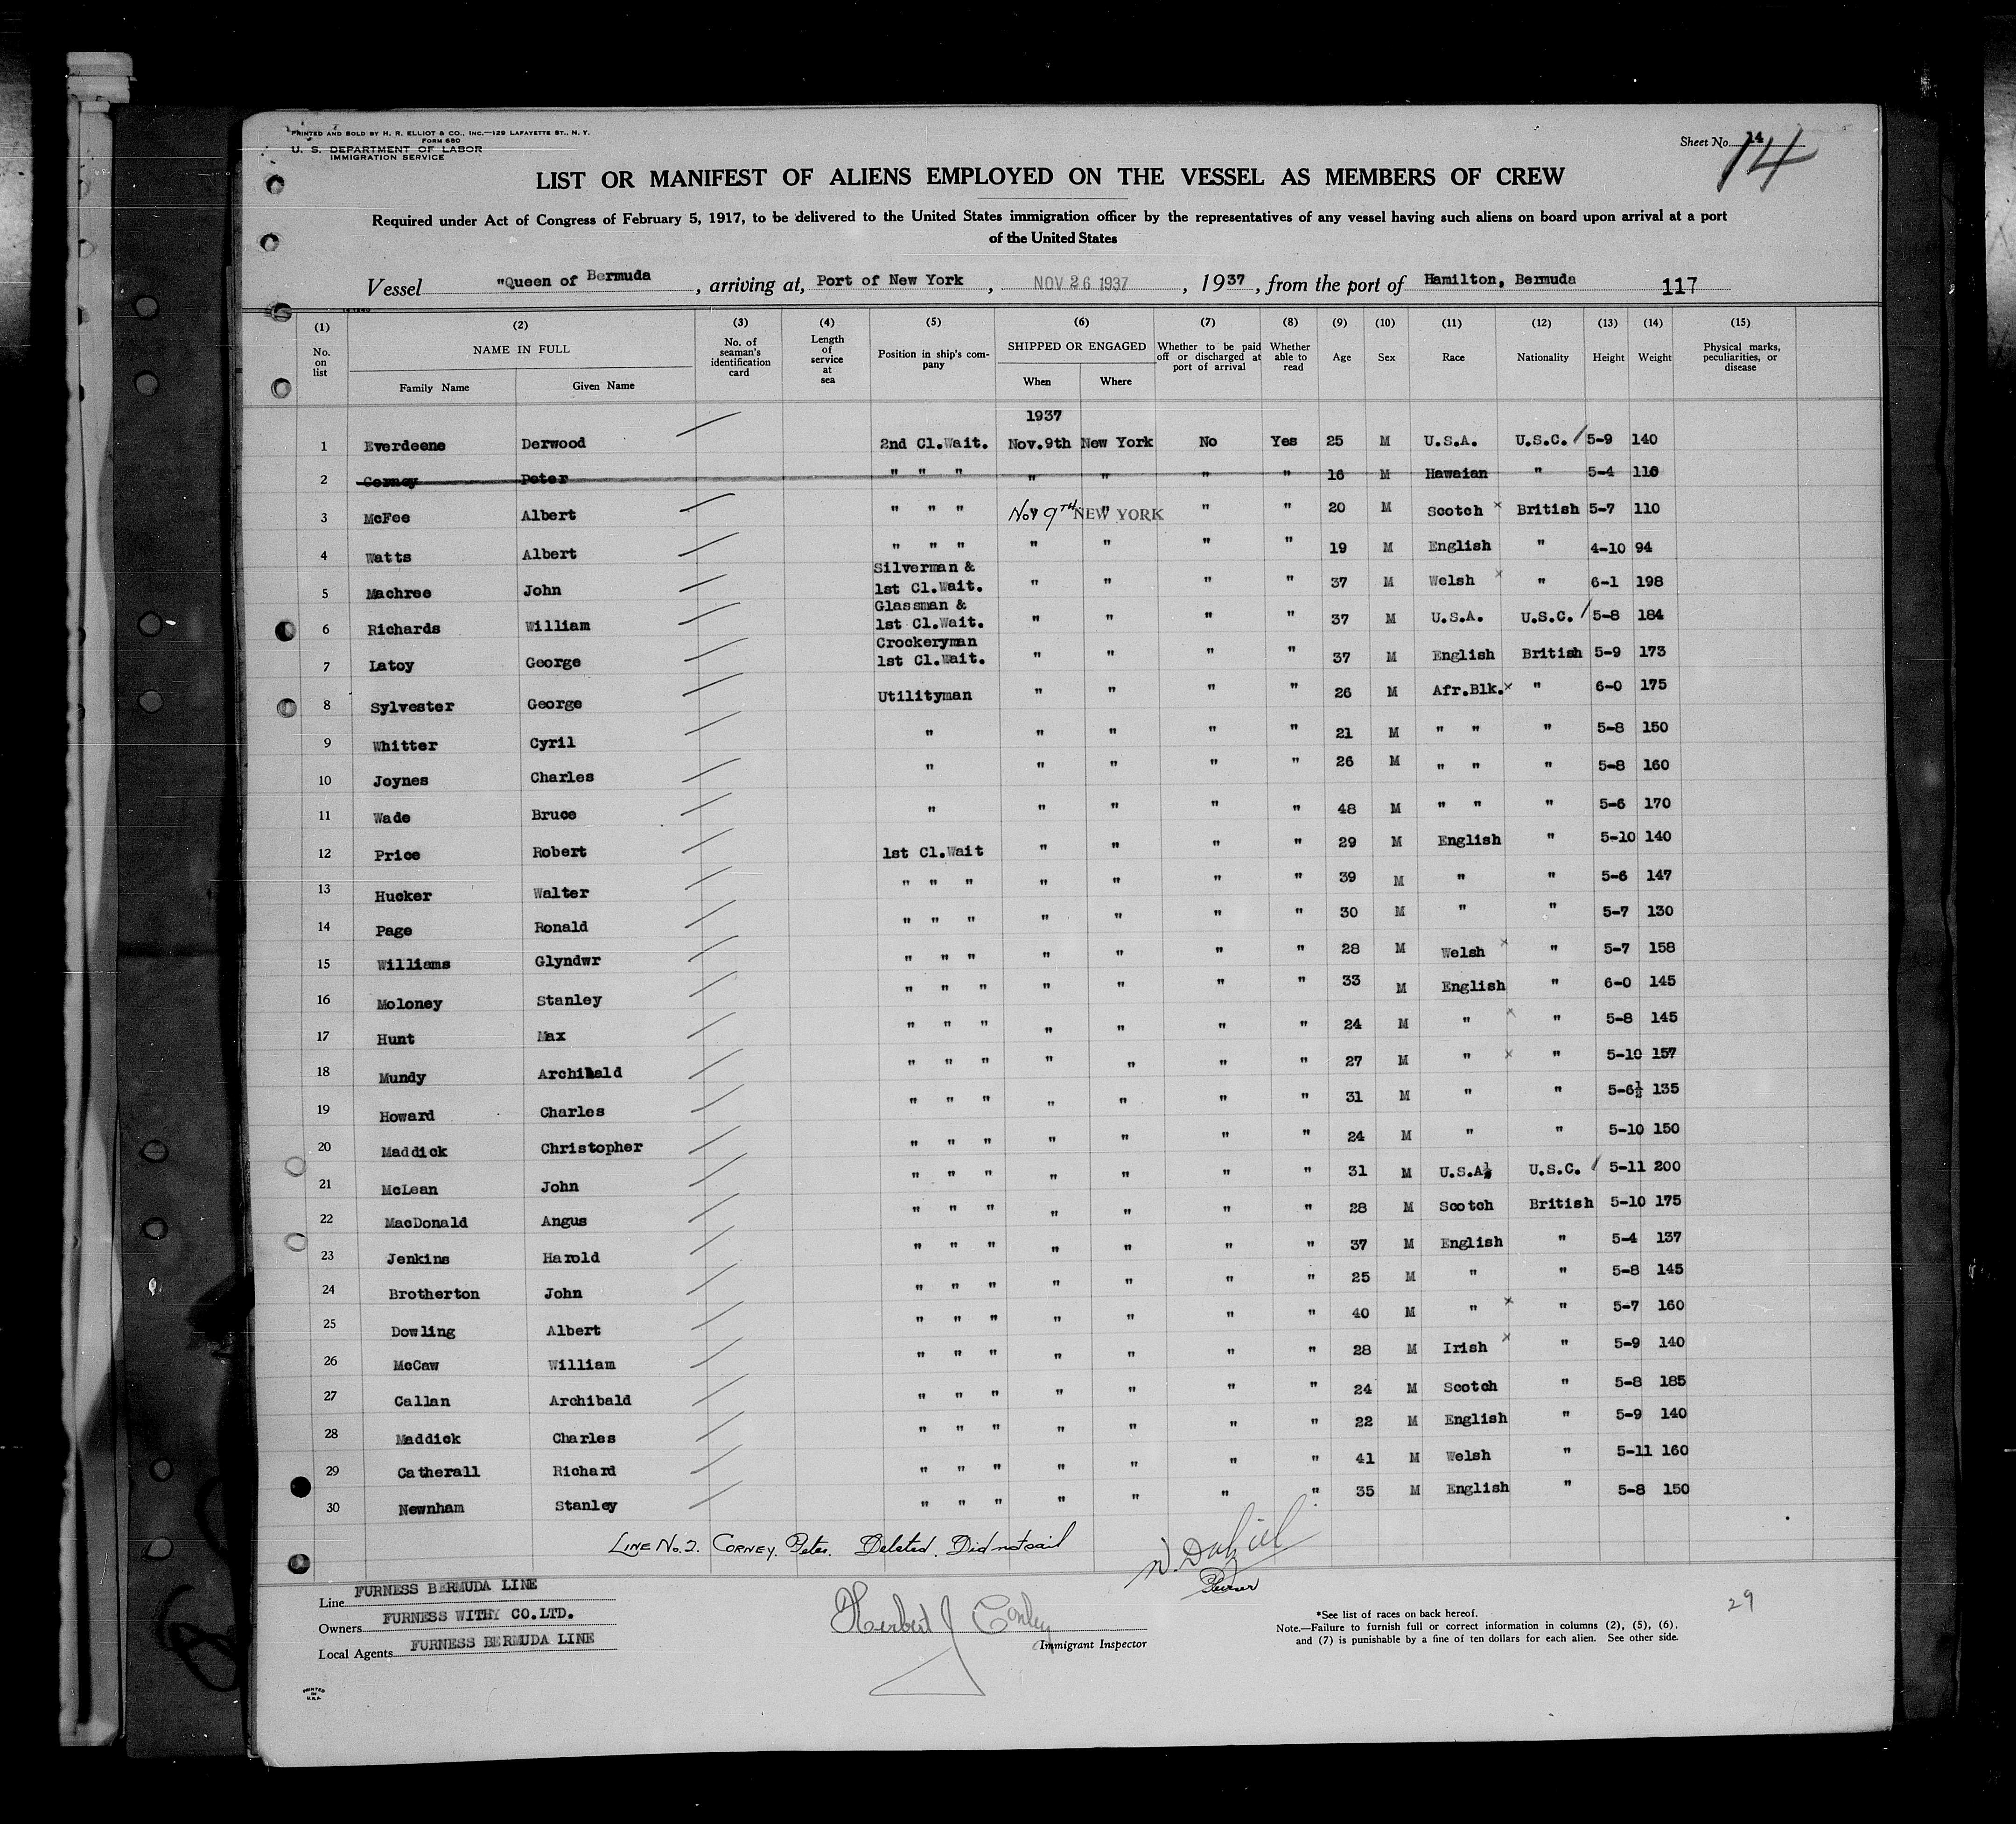 PRINTED AND SOLD BY H. R. ELLIOT & CO., INC.—129 LAFAYETTE ST., N. Y.
FORM 680
U. S. DEPARTMENT OF LABOR
IMMIGRATION SERVICE
Sheet No. 14
14
LIST OR MANIFEST OF ALIENS EMPLOYED ON THE VESSEL AS MEMBERS OF CREW
Required under Act of Congress of February 5, 1917, to be delivered to the United States immigration officer by the representatives of any vessel having such aliens on board upon arrival at a port
of the United States
Vessel "Queen of Bermuda , arriving at, Port of New York , NOV 26 1937 , 1937 , from the port of Hamilton, Bermuda 117
(1) (2) (3) (4) (5) (6) (7) (8) (9) (10) (11) (12) (13) (14) (15)
No. on list NAME IN FULL Family Name Given Name No. of seaman's identification card Length of service at sea Position in ship's company SHIPPED OR ENGAGED When Where Whether to be paid off or discharged at port of arrival Whether able to read Age Sex Race Nationality Height Weight Physical marks, peculiarities, or disease
1937
1 Everdeene Derwood 2nd Cl.Wait. Nov.9th New York No Yes 25 M U.S.A. U.S.C. 5-9 140
2 Corney Peter " " " " " " " 16 M Hawaian " 5-4 110
3 McFee Albert " " " Nov 9TH NEW YORK " " 20 M Scotch x British 5-7 110
4 Watts Albert " " " " " " " 19 M English " 4-10 94
5 Machree John Silverman & 1st Cl.Wait. " " " " 37 M Welsh x " 6-1 198
6 Richards William Glassman & 1st Cl.Wait. " " " " 37 M U.S.A. U.S.C. 5-8 184
7 Latoy George Crockeryman 1st Cl.Wait. " " " " 37 M English British 5-9 173
8 Sylvester George Utilityman " " " " 26 M Afr.Blk. x " 6-0 175
9 Whitter Cyril " " " " " 21 M " " " 5-8 150
10 Joynes Charles " " " " " 26 M " " " 5-8 160
11 Wade Bruce " " " " " 48 M " " " 5-6 170
12 Price Robert 1st Cl.Wait " " " " 29 M English " 5-10 140
13 Hucker Walter " " " " " " " 39 M " " 5-6 147
14 Page Ronald " " " " " " " 30 M " " 5-7 130
15 Williams Glyndwr " " " " " " " 28 M Welsh x " 5-7 158
16 Moloney Stanley " " " " " " " 33 M English " 6-0 145
17 Hunt Max " " " " " " " 24 M " x " 5-8 145
18 Mundy Archibald " " " " " " " 27 M " x " 5-10 157
19 Howard Charles " " " " " " " 31 M " " 5-6½ 135
20 Maddick Christopher " " " " " " " 24 M " " 5-10 150
21 McLean John " " " " " " " 31 M U.S.A. U.S.C. 5-11 200
22 MacDonald Angus " " " " " " " 28 M Scotch British 5-10 175
23 Jenkins Harold " " " " " " " 37 M English " 5-4 137
24 Brotherton John " " " " " " " 25 M " " 5-8 145
25 Dowling Albert " " " " " " " 40 M " x " 5-7 160
26 McCaw William " " " " " " " 28 M Irish x " 5-9 140
27 Callan Archibald " " " " " " " 24 M Scotch " 5-8 185
28 Maddick Charles " " " " " " " 22 M English " 5-9 140
29 Catherall Richard " " " " " " " 41 M Welsh " 5-11 160
30 Newnham Stanley " " " " " " " 35 M English " 5-8 150
LINE No. 2. CORNEY. Peter. Deleted. Did not sail
Purser
Line FURNESS BERMUDA LINE
Owners FURNESS WITHY CO.LTD.
Local Agents FURNESS BERMUDA LINE
Herbert J Conley
Immigrant Inspector
*See list of races on back hereof.
Note.—Failure to furnish full or correct information in columns (2), (5), (6),
and (7) is punishable by a fine of ten dollars for each alien. See other side.
29
PRINTED
IN
U.S.A.